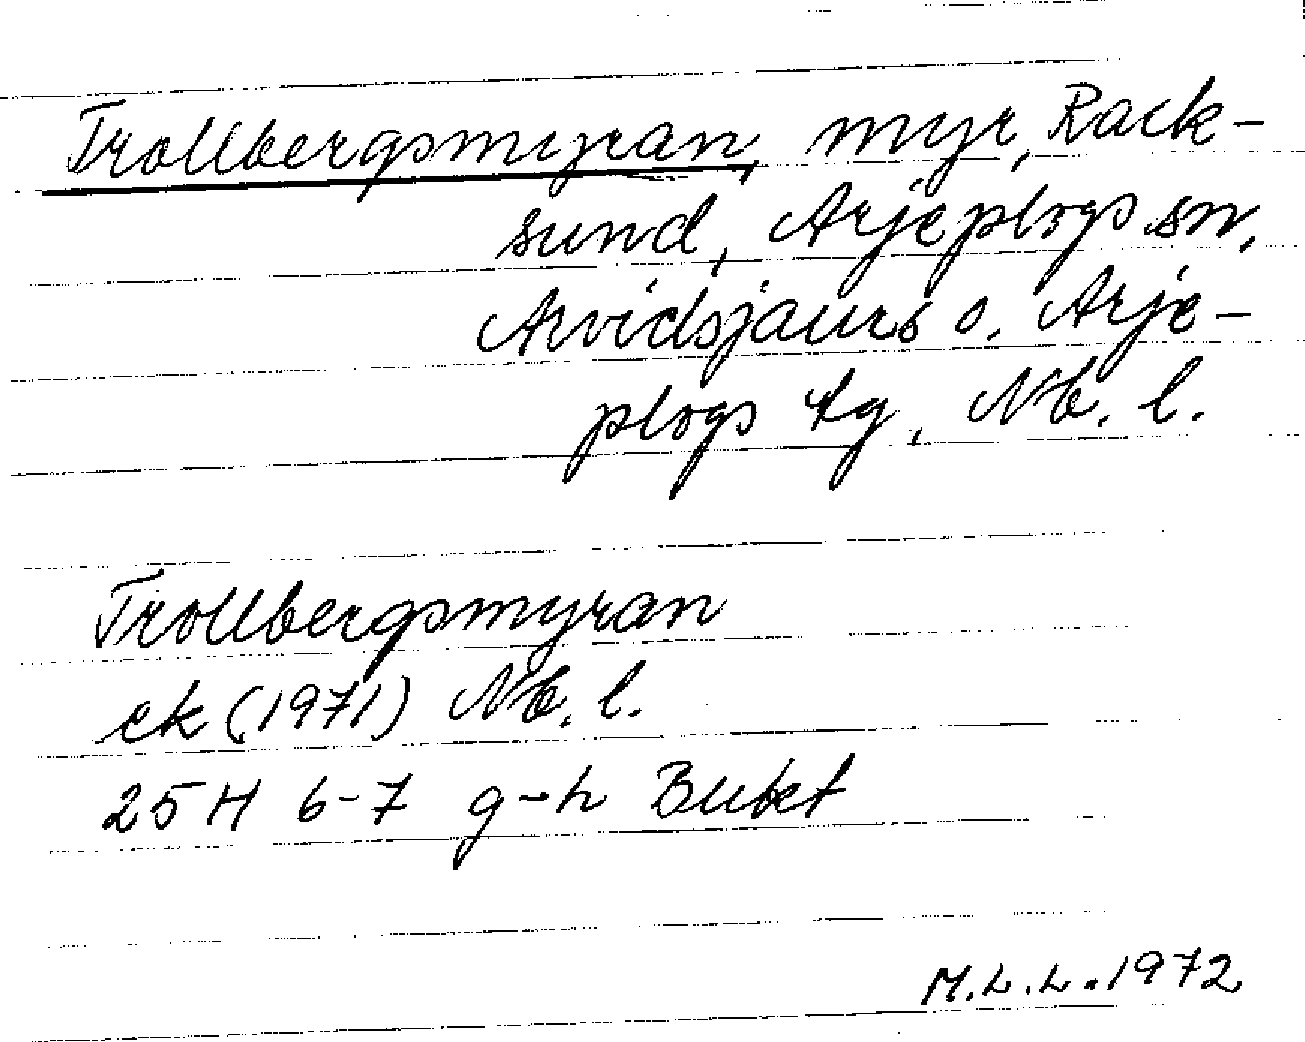 Trollbergsmyran, myr, Rack-
sund, Arjeplogs sn,
Arvidsjaurs o. Arje-
plogs tg, Nb. l.
Trollbergsmyran
ek (1971) Nb. l.
25H 6-7 g-h Buket
M.L.L. 1972